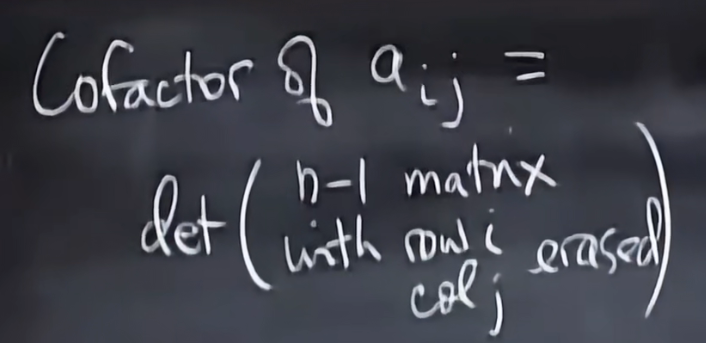 Cofactor of aij =
det ( n-1 matrix
with row i erased )
col j